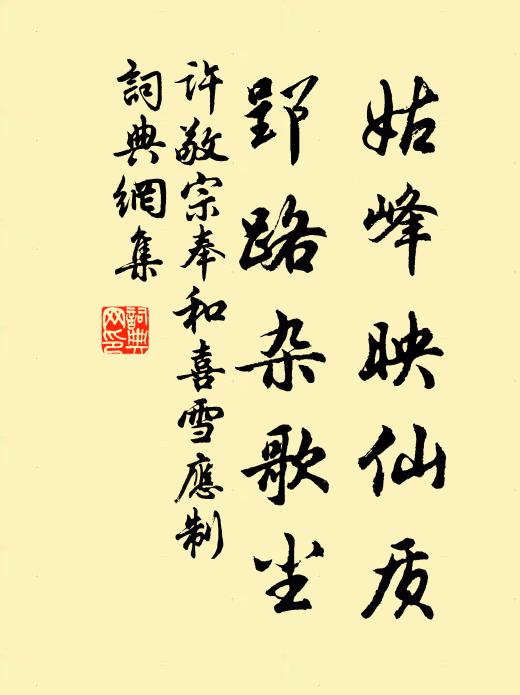 姑峰映仙质
郢路杂歌尘
许敬宗奉和喜雪應制
詞典網集
詞典网印